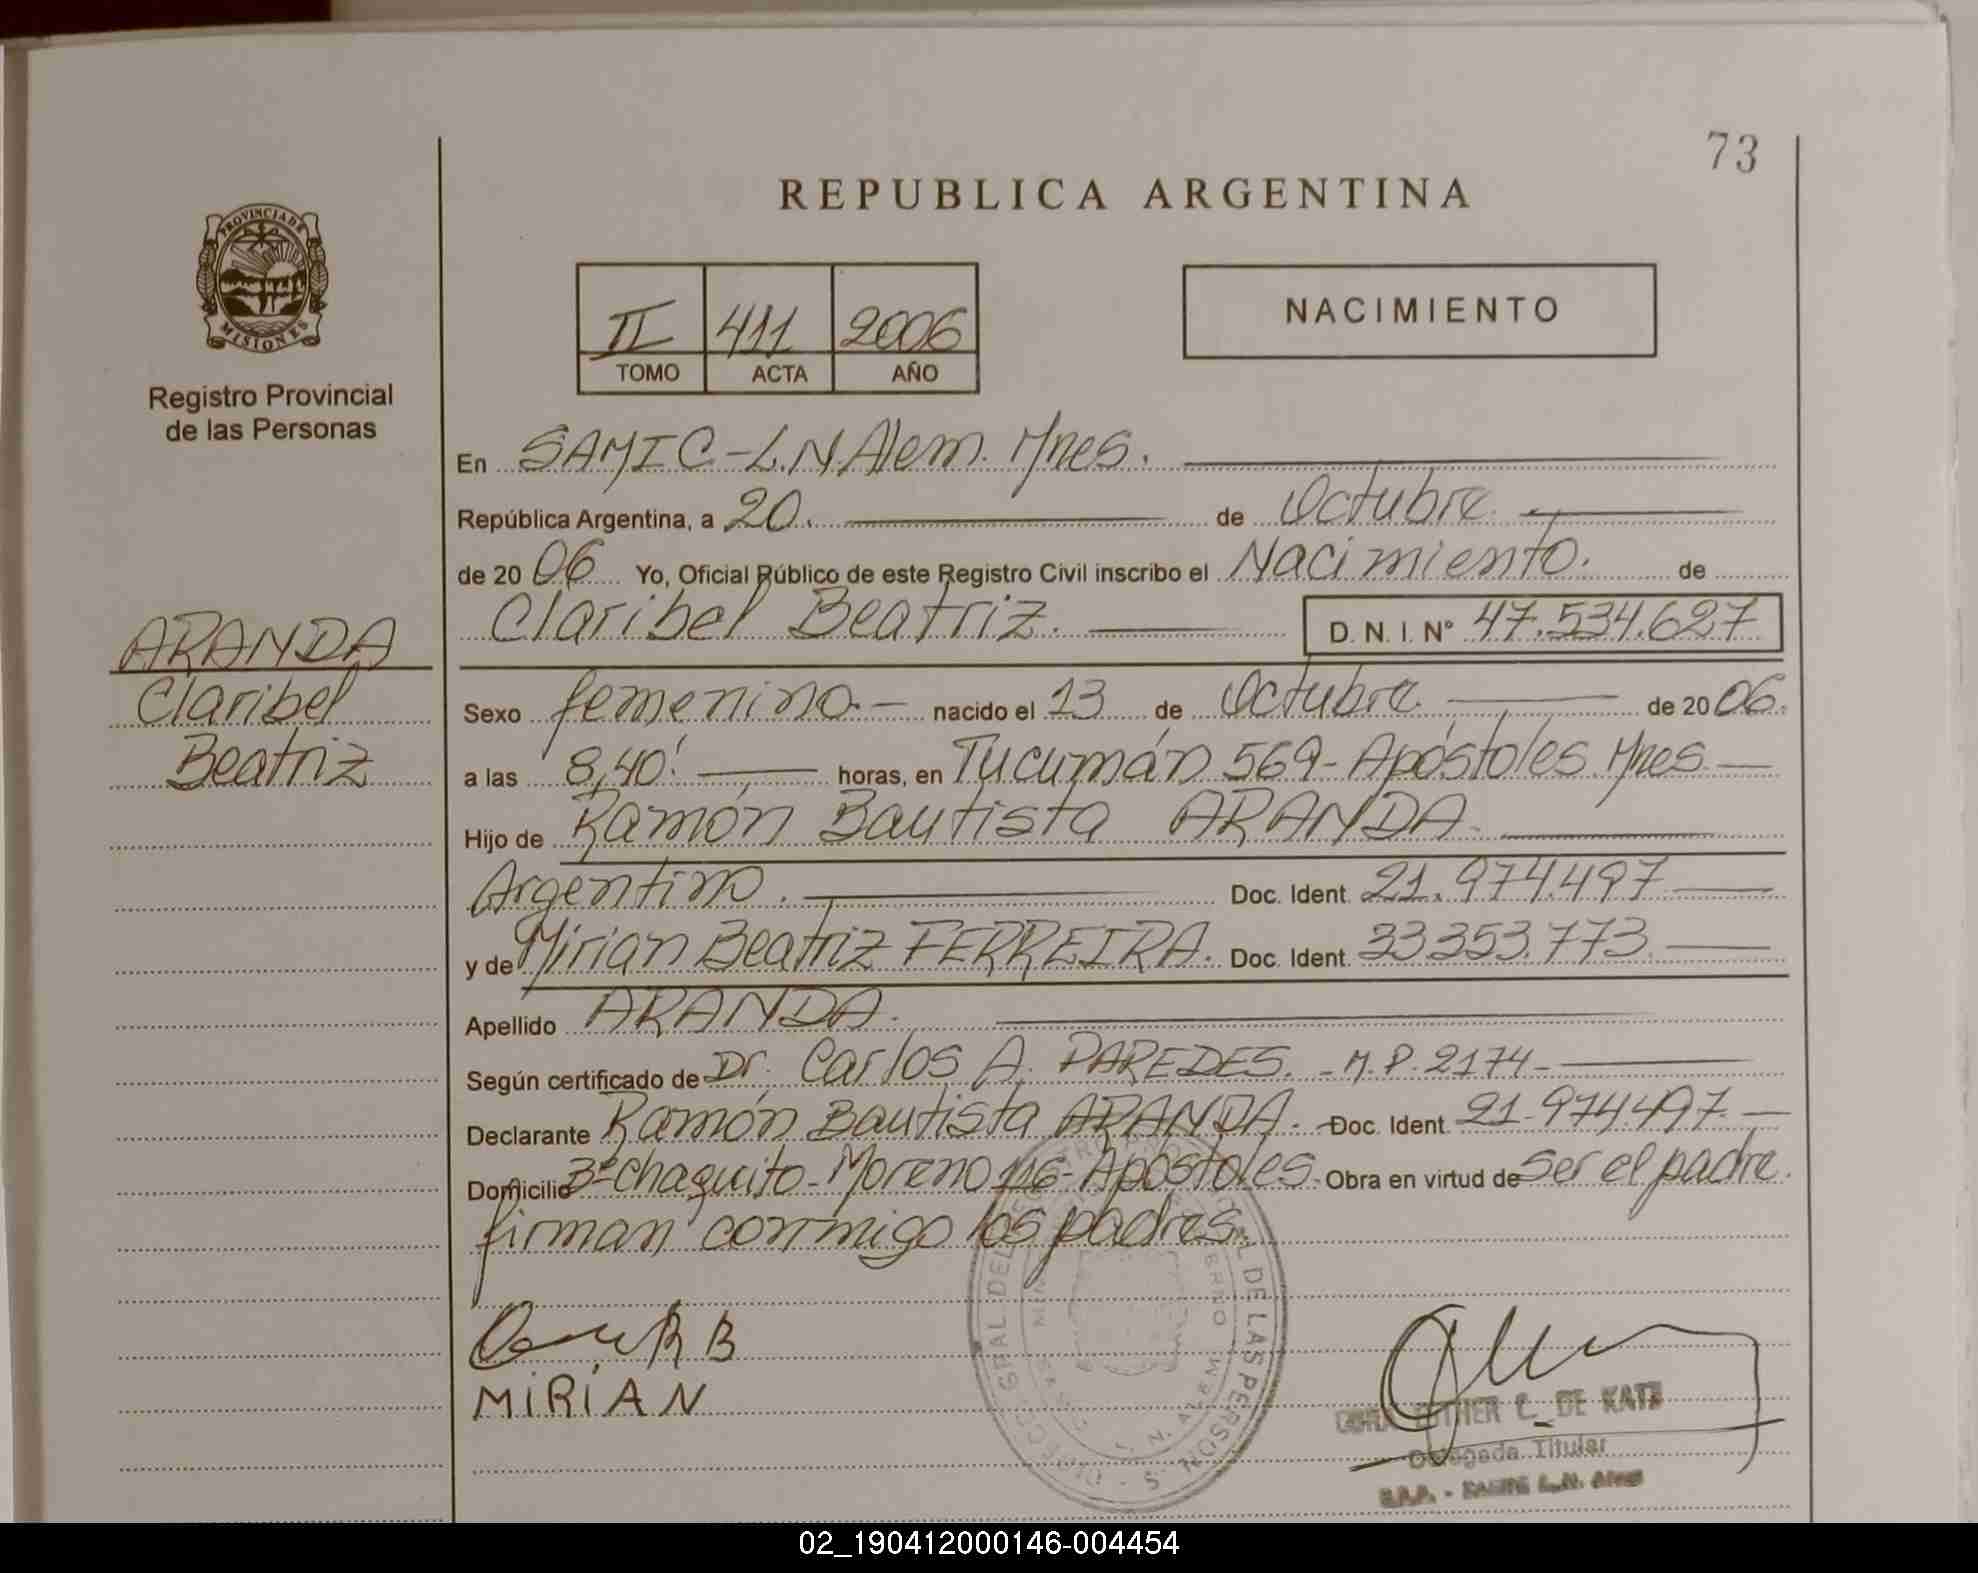 73
REPUBLICA ARGENTINA
PROVINCIA DE
MISIONES
Registro Provincial
de las Personas
II 411 2006
TOMO ACTA AÑO
NACIMIENTO
En SAMIC-L.N.Alem. Mnes.
República Argentina, a 20. de Octubre
de 2006 Yo, Oficial Público de este Registro Civil inscribo el Nacimiento. de
Claribel Beatriz. D. N. I. Nº 47.534.627
ARANDA
Claribel
Beatriz
Sexo femenino.- nacido el 13 de Octubre de 2006.
a las 8,40' horas, en Tucumán 569-Apóstoles. Mnes
Hijo de Ramón Bautista ARANDA.
Argentino. Doc. Ident. 21.974.497
y de Mirian Beatriz FERREIRA. Doc. Ident. 33353.773
Apellido ARANDA.
Según certificado de Dr. Carlos A. PAREDES. -M.P.2174-
Declarante Ramón Bautista ARANDA.- Doc. Ident. 21-974.497.-
Domicilio Bº Chaquito-Moreno 116-Apóstoles. Obra en virtud de ser el padre.
firman conmigo los padres.
R B
MIRIAN
ESTHER C. DE KATZ
Delegada Titular
L.N. Alem
DE LAS PERSONAS
02_190412000146-004454